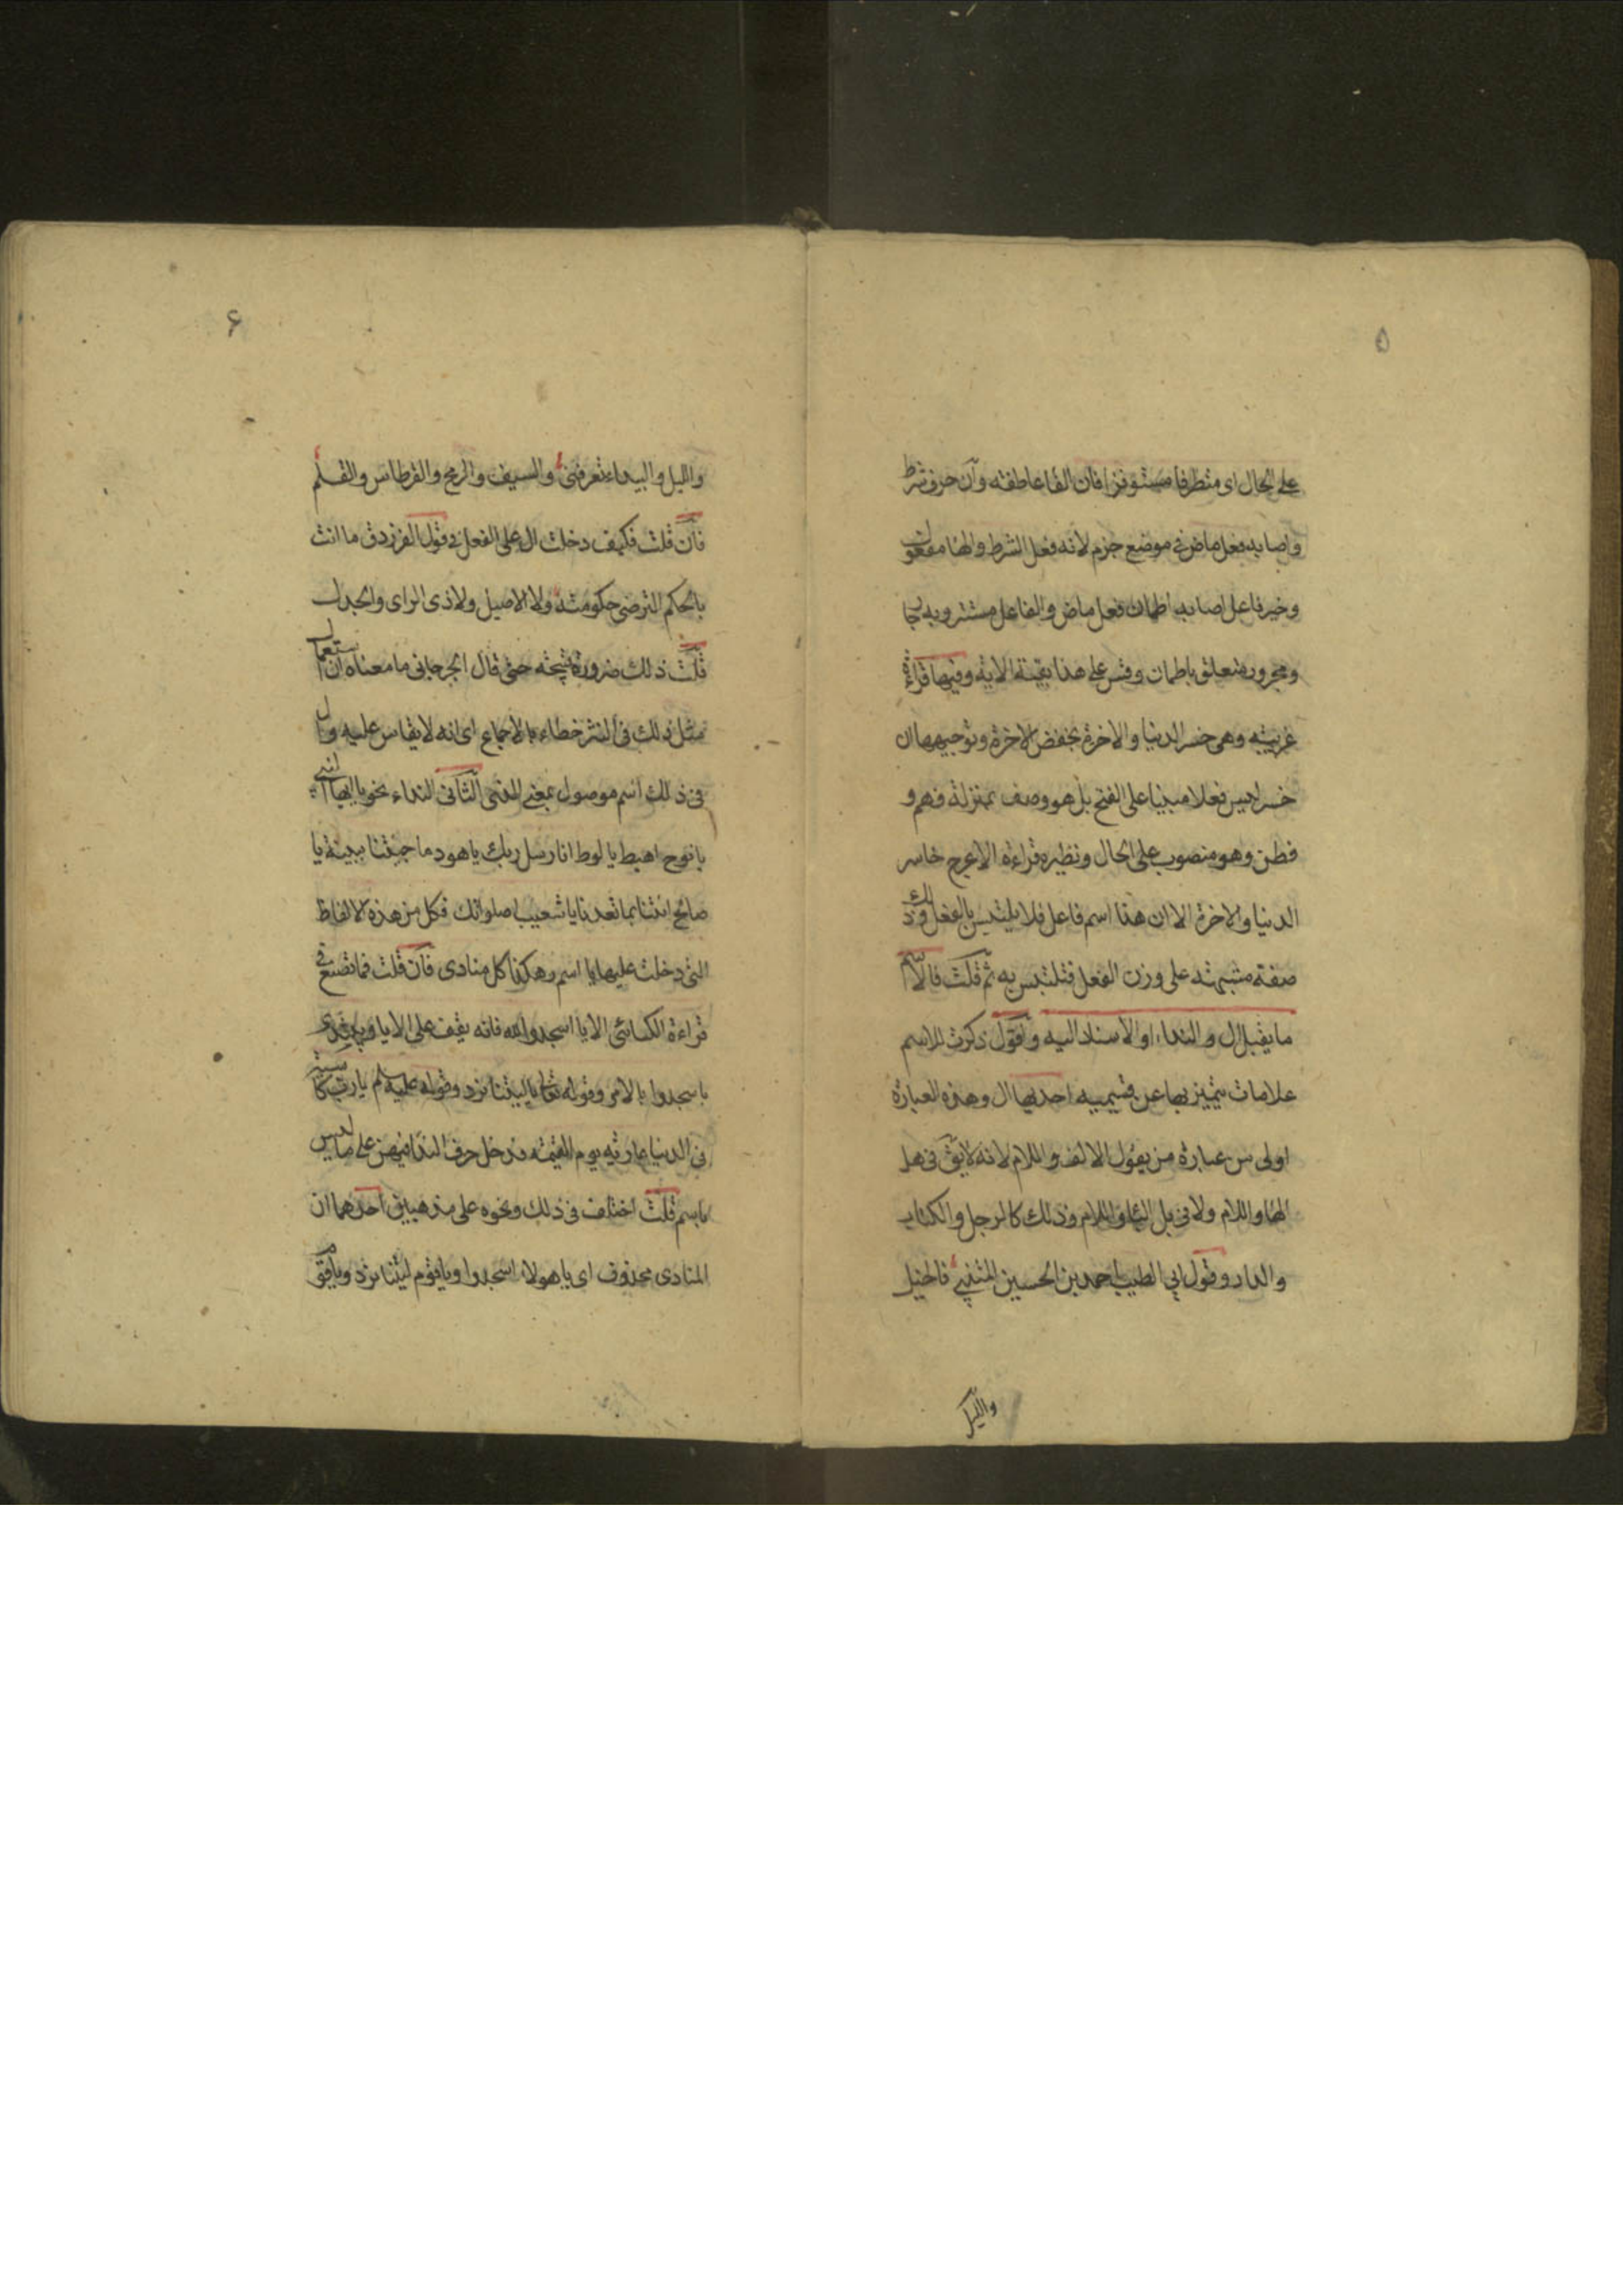 ۵
على الحال اى متطرفا مستوفزا فان الفا عاطفة وان حرف شرط
واصابه فعل ماض فى موضع جزم لانه فعل الشرط والها مفعول
وخير فاعل اصابه اطمان فعل ماض والفاعل مستتر وبه جا
ومجرور متعلق باطمان وقس على هذا بقية الاية وفيها قراءة
غريبة وهى خسر الدنيا والاخرة بخفض الاخرة وتوجيهها ان
خسر ليس فعلا مبنيا على الفتح بل هو وصف بمنزلة فهم و
فطن وهو منصوب على الحال ونظيره قراءة الاعرج خاسر
الدنيا والاخرة الا ان هذا اسم فاعل فلا يلتبس بالفعل وذلك
صفة مشبهة على وزن الفعل فتلتبس به ثم قلت فالاسم
ما يقبل ال والنداء او الاسناد اليه واقول ذكرت للاسم
علامات يتميز بها عن قسيميه احديها ال وهذه العبارة
اولى من عبارة من يقول الالف واللام لانه لا يق فى هل
الها واللام ولا فى بل البا واللام وذلك كالرجل والكتاب
والدار وقول ابى الطيب احمد بن الحسين المتنبى فالخيل
والليل
۶
والليل والبيداء تعرفنى والسيف والرمح والقرطاس والقلم
فان قلت فكيف دخلت ال على الفعل فى قول الفرزدق ما انت
بالحكم الترضى حكومته ولا الاصيل ولا ذى الراى والجدل
قلت ذلك ضرورة قبيحة حتى قال الجرجانى ما معناه ان استعمال
مثل ذلك فى النثر خطاء بالاجماع اى انه لا يقاس عليه وال
فى ذلك اسم موصول بمعنى الذى الثانى النداء نحو يا ايها النبى
يا نوح اهبط يا لوط انا رسل ربك يا هود ما جئتنا ببينة يا
صالح ائتنا بما تعدنا يا شعيب اصلواتك فكل من هذه الالفاظ
التى دخلت عليها يا اسم وهكذا كل منادى فان قلت فما تصنع فى
قراءة الكسائى الا يا اسجدوا لله فانه يقف على الا يا ويبتدى
باسجدوا بالامر وقوله تعالى يا ليتنا نرد وقوله عليه سلم يا رب كاسية
فى الدنيا عارية يوم القيمة فدخل حرف الندا فيهن على ما ليس
باسم قلت اختلف فى ذلك ونحوه على مذهبين احدهما ان
المنادى محذوف اى يا هولاء اسجدوا ويا قوم ليتنا نرد ويا قوم